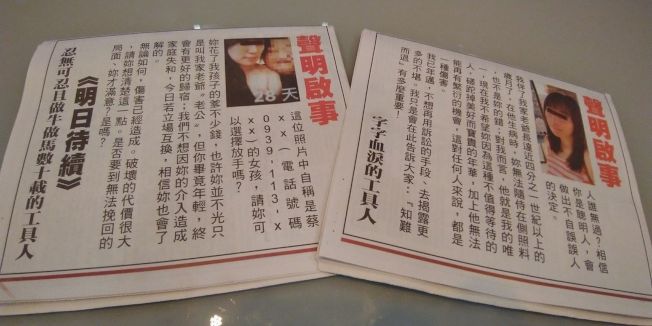 聲明啟事
28 天
這位照片中自稱是蔡
xx(電話號碼
0939-113-x
xx)的女孩,請妳可
以選擇放手嗎?
妳花了我孩子的爹不少錢,也許妳並不光只
是叫我家老爺。老公,但你畢竟年輕,終
會有更好的歸宿;我們不想因妳的介入造成
家庭失和,今日若立場互換,相信妳也會了
解的。
無論如何,傷害已經造成。破壞的代價很大
,請妳想清楚這一點。是否要到無法挽回的
局面、妳才滿意?是嗎?
《明日待續》
忍無可忍且做牛做馬數十載的工具人
聲明啟事
人誰無過?相信
你是聰明人,會
做出不自誤誤人
的決定。
我伴了我家老爺長達近四分之一世紀以上的
歲月了,在他生病時,妳無法隨侍在側照料
,也不是妳的錯;對我而言,他就是我的唯
一,現在我不希望妳因為這種不值得等待的
人,磋跎掉美好而寶貴的年華,加上他無法
能再有繁衍的機會,這對任何人來說,都是
一種傷害。
我已年邁,不想再用訴訟的手段、去揭露更
多的不堪。我只是會在此告訴大家:『知難
而退』有多麼重要!
字字血淚的工具人